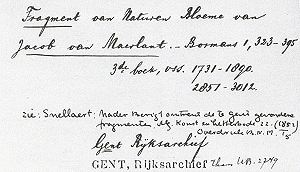 Fragment van Naturen Bloeme van
Jacob van Maerlant. - Bormans 1, 323-395
3de boek, vss. 1731-1890.
2851-3012.
zie: Snellaert: Nader berigt omtrent de te Gend gevonden
fragmenten Konst en Letterblad 22. (1851)
Overdruk
Gent Rijksarchief
GENT, Rijksarchief Thans U.B. 2749